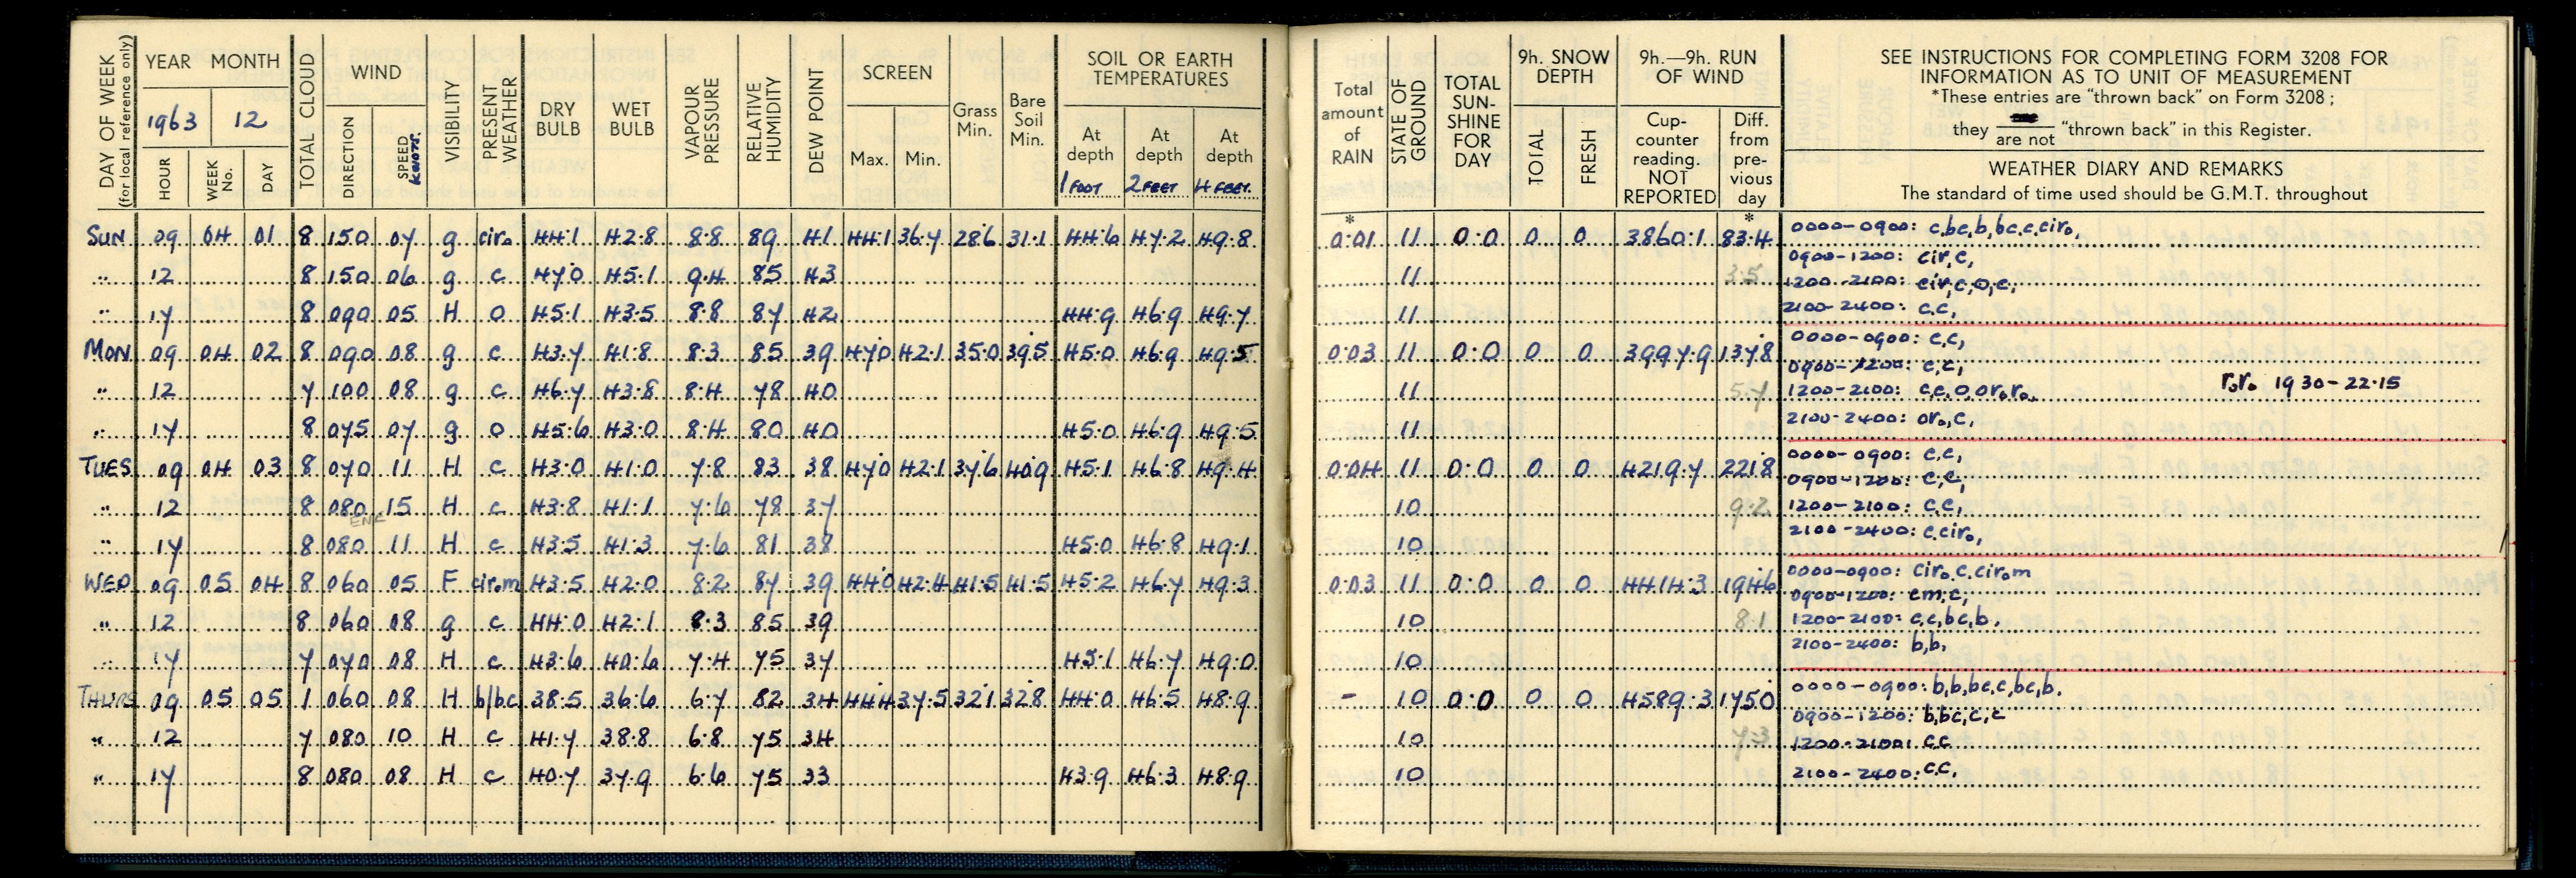 DAY OF WEEK (for local reference only)
YEAR MONTH
1963 12
HOUR WEEK No. DAY
TOTAL CLOUD
WIND
DIRECTION SPEED KNOTS.
VISIBILITY
PRESENT WEATHER
DRY BULB
WET BULB
VAPOUR PRESSURE
RELATIVE HUMIDITY
DEW POINT
SCREEN
Max. Min.
Grass Min.
Bare Soil Min.
SOIL OR EARTH TEMPERATURES
At depth 1 FOOT
At depth 2 FEET
At depth 4 FEET.
Total amount of RAIN
STATE OF GROUND
TOTAL SUN-SHINE FOR DAY
9h. SNOW DEPTH
TOTAL FRESH
9h.—9h. RUN OF WIND
Cup-counter reading. NOT REPORTED
Diff. from pre-vious day
SEE INSTRUCTIONS FOR COMPLETING FORM 3208 FOR
INFORMATION AS TO UNIT OF MEASUREMENT
*These entries are "thrown back" on Form 3208;
they are not "thrown back" in this Register.
WEATHER DIARY AND REMARKS
The standard of time used should be G.M.T. throughout
* *
SUN 09 04 01 8 150 07 g cir₀ 44.1 42.8 8.8 89 41 44.1 36.7 28.6 31.1 44.6 47.2 49.8 0.01 11 0.0 0 0 3860.1 83.4 0000-0900: c,bc,b,bc,c,cir₀,
0900-1200: cir,c,
" 12 8 150 06 g c 47.0 45.1 9.4 85 43 11 3.5 1200-2100: cir,c,o,c,
" 17 8 090 05 H o 45.1 43.5 8.8 87 42 44.9 46.9 49.7 11 2100-2400: c,c,
MON 09 04 02 8 090 08 g c 43.7 41.8 8.3 85 39 47.0 42.1 35.0 39.5 45.0 46.9 49.5 0.03 11 0.0 0 0 3997.9 137.8 0000-0900: c,c,
0900-1200: c,c,
" 12 7 100 08 g c 46.7 43.8 8.4 78 40 11 5.7 1200-2100: c,c,o,or₀r₀, r₀r₀ 1930-22.15
" 17 8 075 07 g o 45.6 43.0 8.4 80 40 45.0 46.9 49.5 11 2100-2400: or₀,c,
TUES 09 04 03 8 070 11 H c 43.0 41.0 7.8 83 38 47.0 42.1 37.6 40.9 45.1 46.8 49.4 0.04 11 0.0 0 0 4219.7 221.8 0000-0900: c,c,
0900-1200: c,c,
" 12 8 080 15 H c 43.8 41.1 7.6 78 37 10 9.2 1200-2100: c,c,
ENE
" 17 8 080 11 H c 43.5 41.3 7.6 81 38 45.0 46.8 49.1 10 2100-2400: c,cir₀,
WED 09 05 04 8 060 05 F cir₀m 43.5 42.0 8.2 87 39 44.0 42.4 41.5 41.5 45.2 46.7 49.3 0.03 11 0.0 0 0 4414.3 194.6 0000-0900: cir₀,c,cir₀m
0900-1200: cm,c,
" 12 8 060 08 g c 44.0 42.1 8.3 85 39 10 8.1 1200-2100: c,c,bc,b,
" 17 7 070 08 H c 43.6 40.6 7.4 75 37 45.1 46.7 49.0 10 2100-2400: b,b,
THURS 09 05 05 1 060 08 H b/bc 38.5 36.6 6.7 82 34 44.4 37.5 32.1 32.8 44.0 46.5 48.9 - 10 0.0 0 0 4589.3 175.0 0000-0900: b,b,bc,c,bc,b,
0900-1200: b,bc,c,c
" 12 7 080 10 H c 41.7 38.8 6.8 75 34 10 7.3 1200-2100: c.c
" 17 8 080 08 H c 40.7 37.9 6.6 75 33 43.9 46.3 48.9 10 2100-2400: c.c,